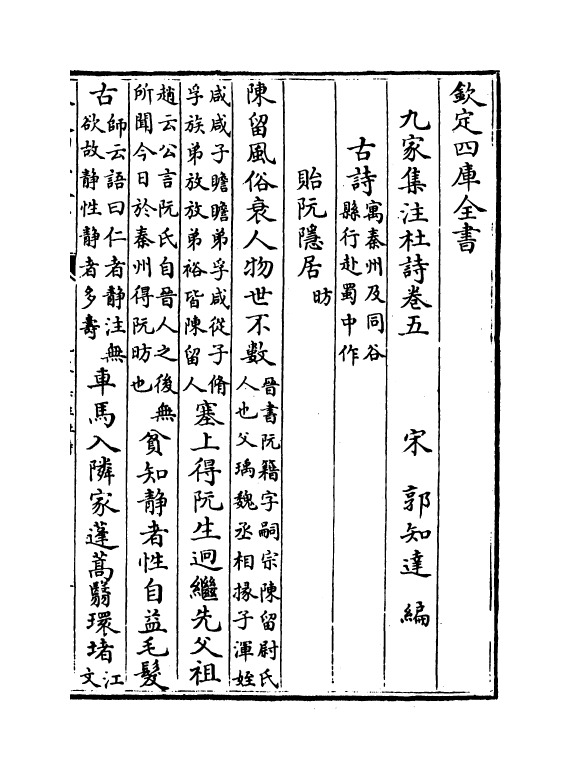 欽定四庫全書
九家集注杜詩卷五
宋 郭知達 編
古詩寓秦州及同谷
縣行赴蜀中作
貽阮隱居昉
陳留風俗衰人物世不數晉書阮籍字嗣宗陳留尉氏
人也父瑀魏丞相掾子渾姪
咸咸子瞻瞻弟孚咸從子脩
孚族弟放放弟裕皆陳留人塞上得阮生迥繼先父祖
趙云公言阮氏自晉人之後無
所聞今日於秦州得阮昉也貧知静者性自益毛髮
古師云語曰仁者静注無
欲故静性静者多壽車馬入隣家蓬蒿翳環堵江
文